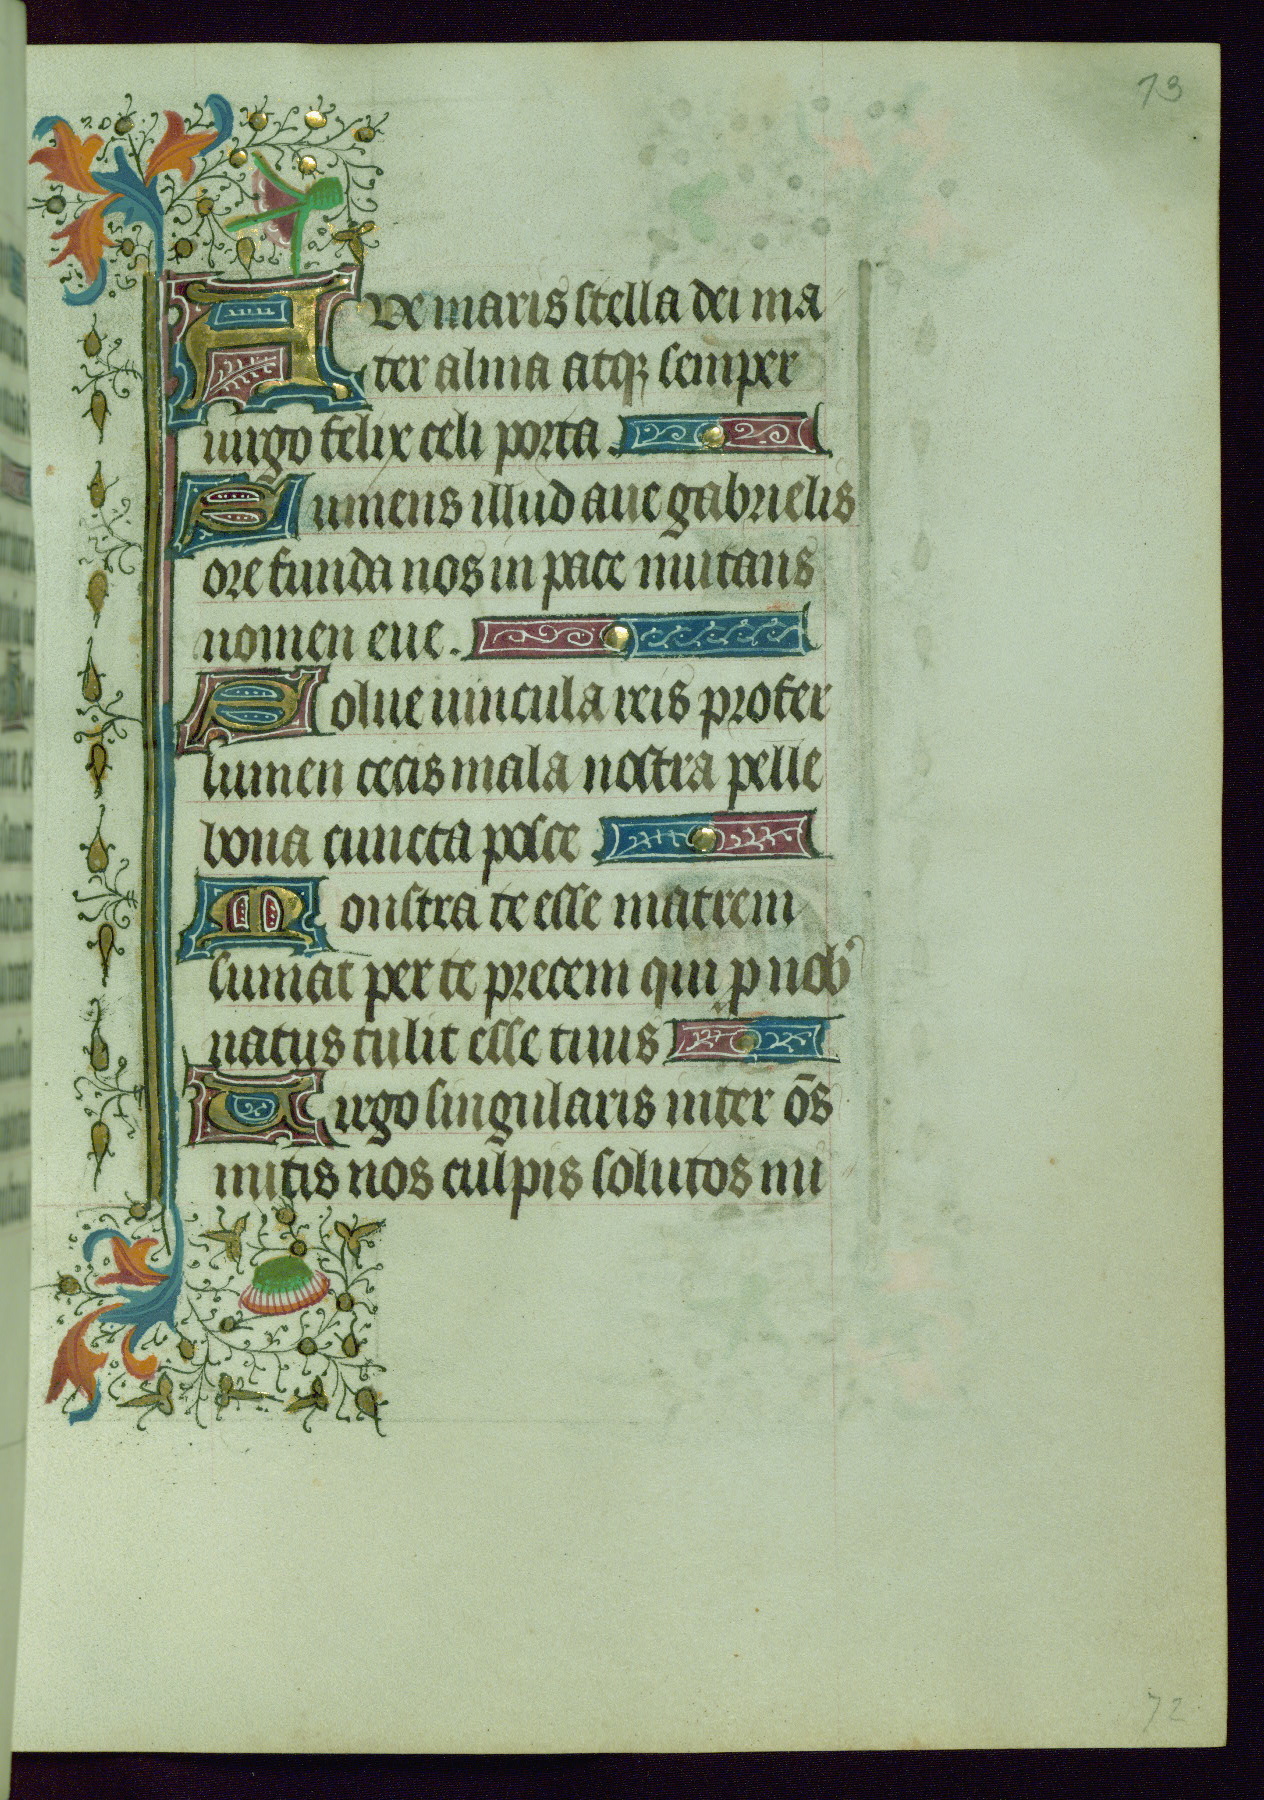 73
Ave maris stella dei ma
ter alma atq; semper
uirgo felix celi porta.
Sumens illud aue gabrielis
ore funda nos in pace mutans
nomen eue.
Solue uincula reis profer
lumen cecis mala nostra pelle
bona cuncta posce
Monstra te esse matrem
sumat per te precem qui p nob
natus tulit esse tuus
Uirgo singularis inter o̅s
mitis nos culpis solutos mi
72